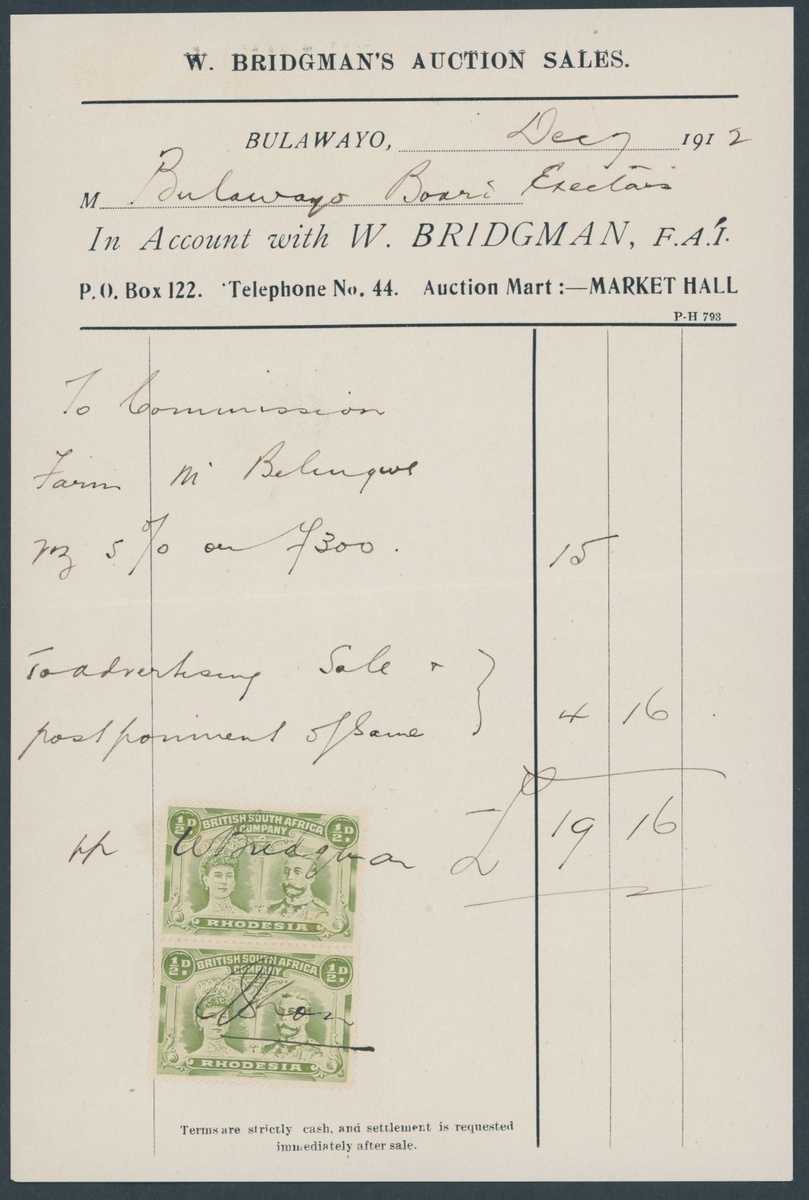 W. BRIDGMAN'S AUCTION SALES.
BULAWAYO, Dec 7 1912
M Bulawayo Board Exectors
In Account with W. BRIDGMAN, F.A.I.
P.O. Box 122. Telephone No. 44. Auction Mart :—MARKET HALL
P-H 793
To Commission
Farm M' Belingwe
5 % on £300. 15
To advertising Sale +
postponment of Same 4 16
£ 19 16
pp W Bridgman
½D BRITISH SOUTH AFRICA COMPANY ½D
RHODESIA
½D BRITISH SOUTH AFRICA COMPANY ½D
RHODESIA
Terms are strictly cash, and settlement is requested
immediately after sale.